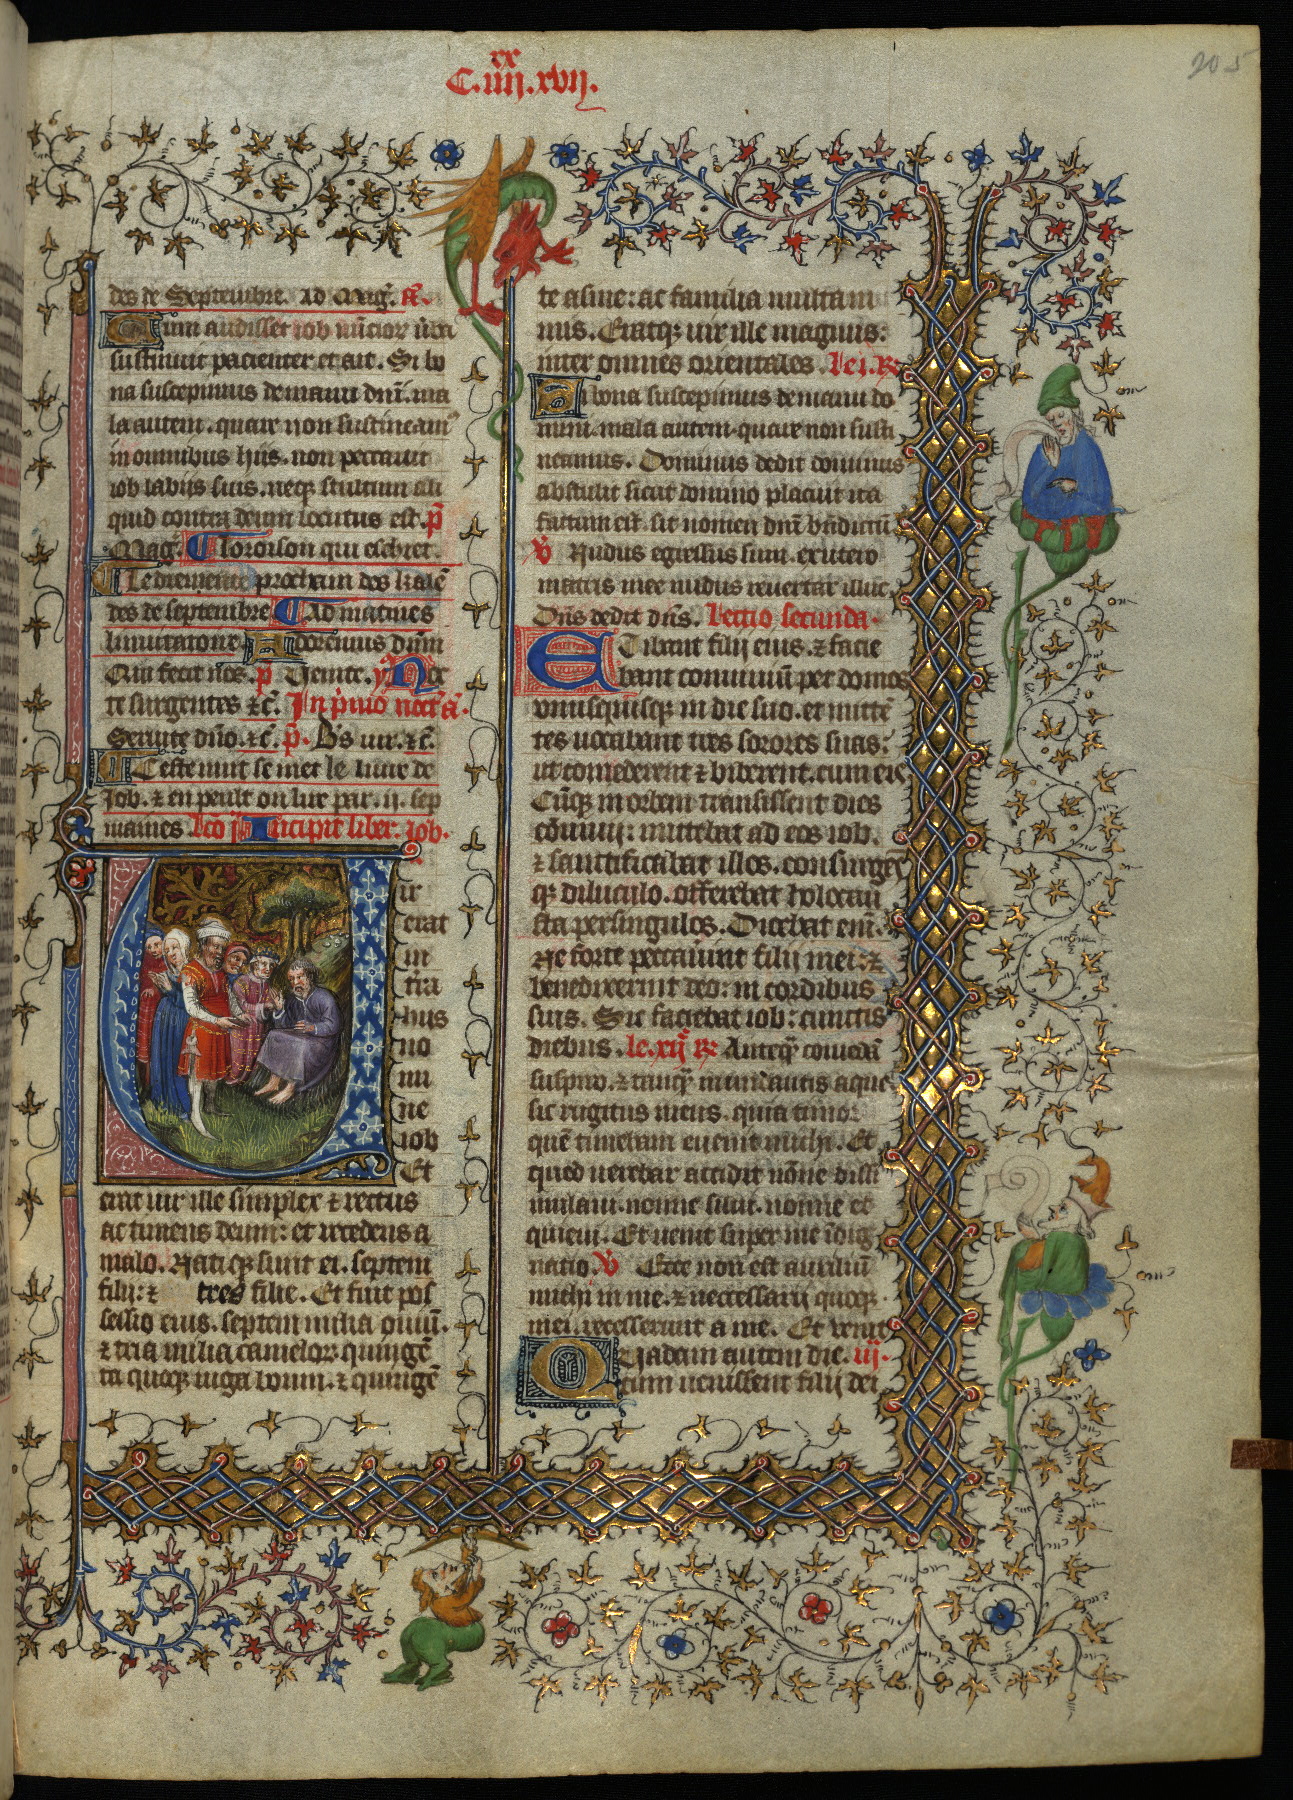 xx
C.iiii.xvij.
205
des de Septembre. Ad Mag̃. ã.
Cum audisset iob nũcior ũba
sustinuit pacienter et ait. Si bo
na suscepimus de manu dnĩ. ma
la autem. quare non sustineam᷒
in omnibus hiis. non peccauit
iob labiis suis. neqз stultum ali
quid contra deum locutus est. p̃
Mag̃. Lororison qui eschiet
Le diemence prochain des kałẽ
des de septembre Ad matines
Inuitatoire. Adoremus dñm
Qui fecit nos. p̃ Venite. ỹ Noc
te surgentes ⁊c̃. In p'mo noct' ã.
Seruite dño. ⁊c̃. p̃. Bs̃ uir. ⁊c̃.
Ceste nuit se met le liure de
Job. ⁊ en peult on lire par .ij. sep
maines. lc̃o j Incipit liber. iob.
Uir
erat
in
t'ra
hus
no
mi
ne
iob
Et
erat uir ille simplex ⁊ rectus
ac timens deum: et recedens a
malo. Natiqз sunt ei. septem
filii: ⁊ tres filie. Et fuit pos
sessio eius. septem milia ouiũ.
⁊ tria milia camelor. quĩgẽ
ta quoqз iuga boum. ⁊ quingẽ
te asine: ac familia multa ni
mis. Eratqз uir ille magnus:
inter omnes orientales. Le j. ꝶ
Si bona suscepimus de manu do
mini. mala autem quare non susti
neamus. Dominus dedit dominus
abstulit sicut domino placuit ita
factum est. sit nomen dnĩ bñdictũ
℣ Nudus egressus sum. ex utero
matris mee nudus reuertar illuc
Dñs dedit dñs. Lectio secunda.
ET ibant filij eius. ⁊ facie
bant conuiuiũ per domos
vnusquisqз in die suo. et mittẽ
tes uocabant tres sorores suas:
ut comederent ⁊ biberent. cum eis
Cũqз in orbem transissent dies
cõuiuij: mittebat ad eos iob.
⁊ sanctificabat illos. consurgẽs
qз diluculo. offerebat holocau
sta per singulos. Dicebat eni᷒.
Ne forte peccauint filij mei: ⁊
benedixerint deo: in cordibus
suis. Sic faciebat iob: cunctis
diebus. le. xij ꝶ Anteqз comedã
suspiro. ⁊ tanqз inundantis aque
sic rugitus meus. quia timor
quẽ timebam euenit michi. Et
quod uerebar accidit nõne dissi
mulaui. nonne silui. nonne et
quieui. Et uenit super me ĩdig
natio. ℣ Ecce non est auxiliũ
michi in me. ⁊ necessarij quoqз.
mei. recesserunt a me. Et venit
Quadam autem die. iij.
cum uenissent filij dei